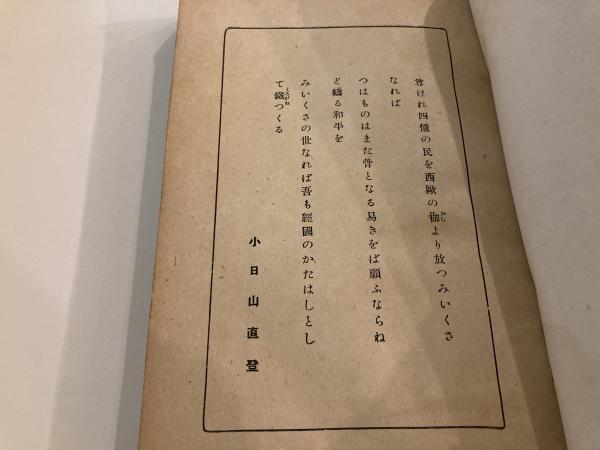 尊けれ四億の民を西歐の枷より放つみいくさ
なれば
つはものはまた骨となる易きをば願ふならね
ど禱る和平を
みいくさの世なれば吾も經國のかたはしとし
て鐵つくる
小日山直登